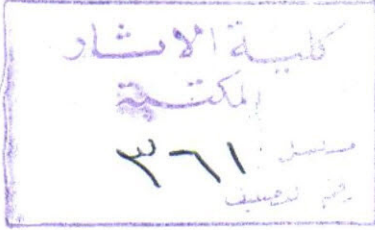 كلية الآثار
المكتبة
مسلسل ٣٦١
رقم تصنيف